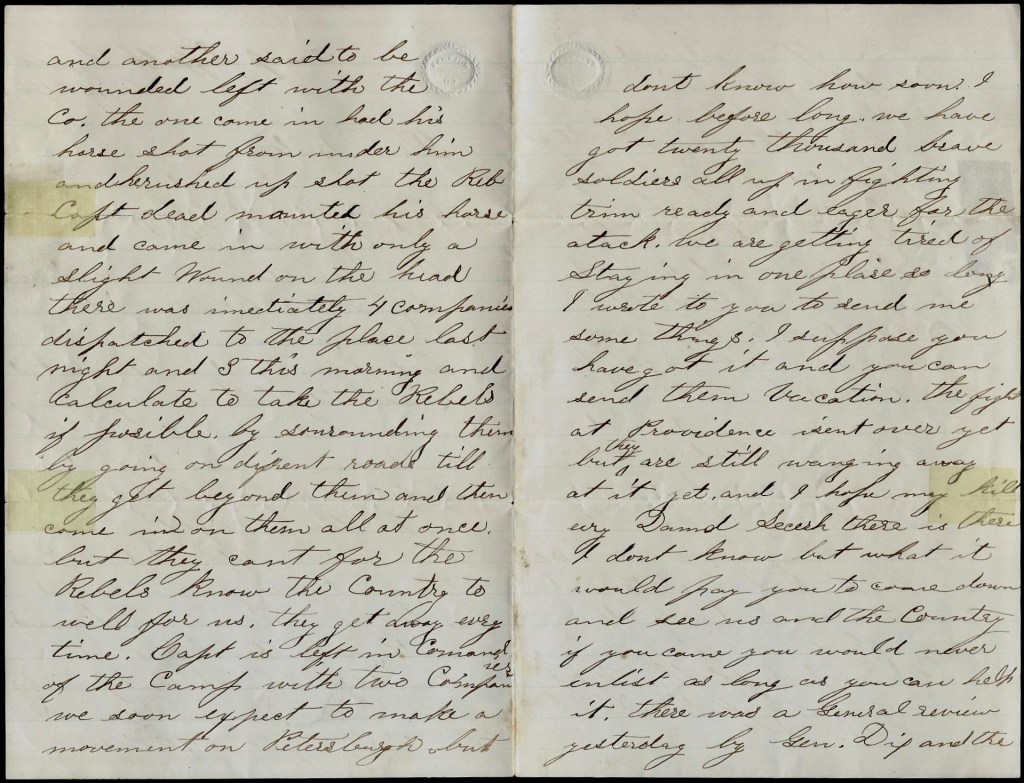 and another said to be
wounded left with the
Co. the one come in had his
horse shot from under him
and he rushed up shot the Reb
Capt dead mounted his horse
and came in with only a
slight Wound on the head
there was imediately 4 companies
dispatched to the place last
night and 3 this morning and
calculate to take the Rebels
if posible. by sourounding them
by going on diferent roads till
they get beyond them and then
come in on them all at once.
but they cant for the
Rebels Know the Country to
well for us. they get away every
time. Capt is left in Comand
of the Camp with two Companies
we soon expect to make a
movement on Petersburgh but
dont know how soon. I
hope before long. we have
got twenty thousand brave
soldiers all up in fighting
trim ready and eager for the
atack. we are getting tired of
Staying in one plase so long
I wrote to you to send me
some things. I suppose you
have got it and you can
send them Vacation. the fight
at Providence isent over yet
but they are still wanging away
at it yet. and I hope may kill
evry Damd Secesh there is there
I dont know but what it
would pay you to come down
and see us and the Country
if you came you would never
enlist as long as you can help
it. there was a General review
yesterday by Gen. Dix and the